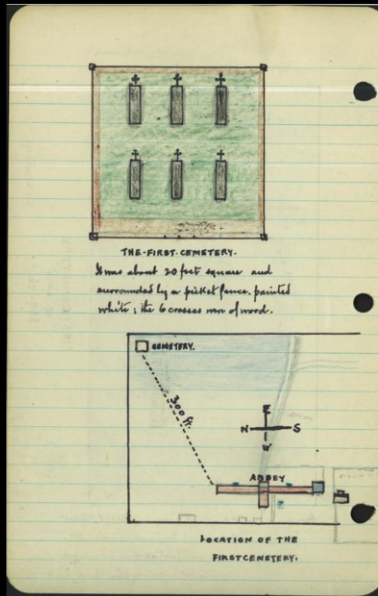 THE·FIRST·CEMETERY·
It was about 20 feet square and
surrounded by a picket fence, painted
white; the 6 crosses were of wood.
CEMETERY.
300 ft.
E
N S
W
ABBEY
LOCATION OF THE
FIRST CEMETERY.